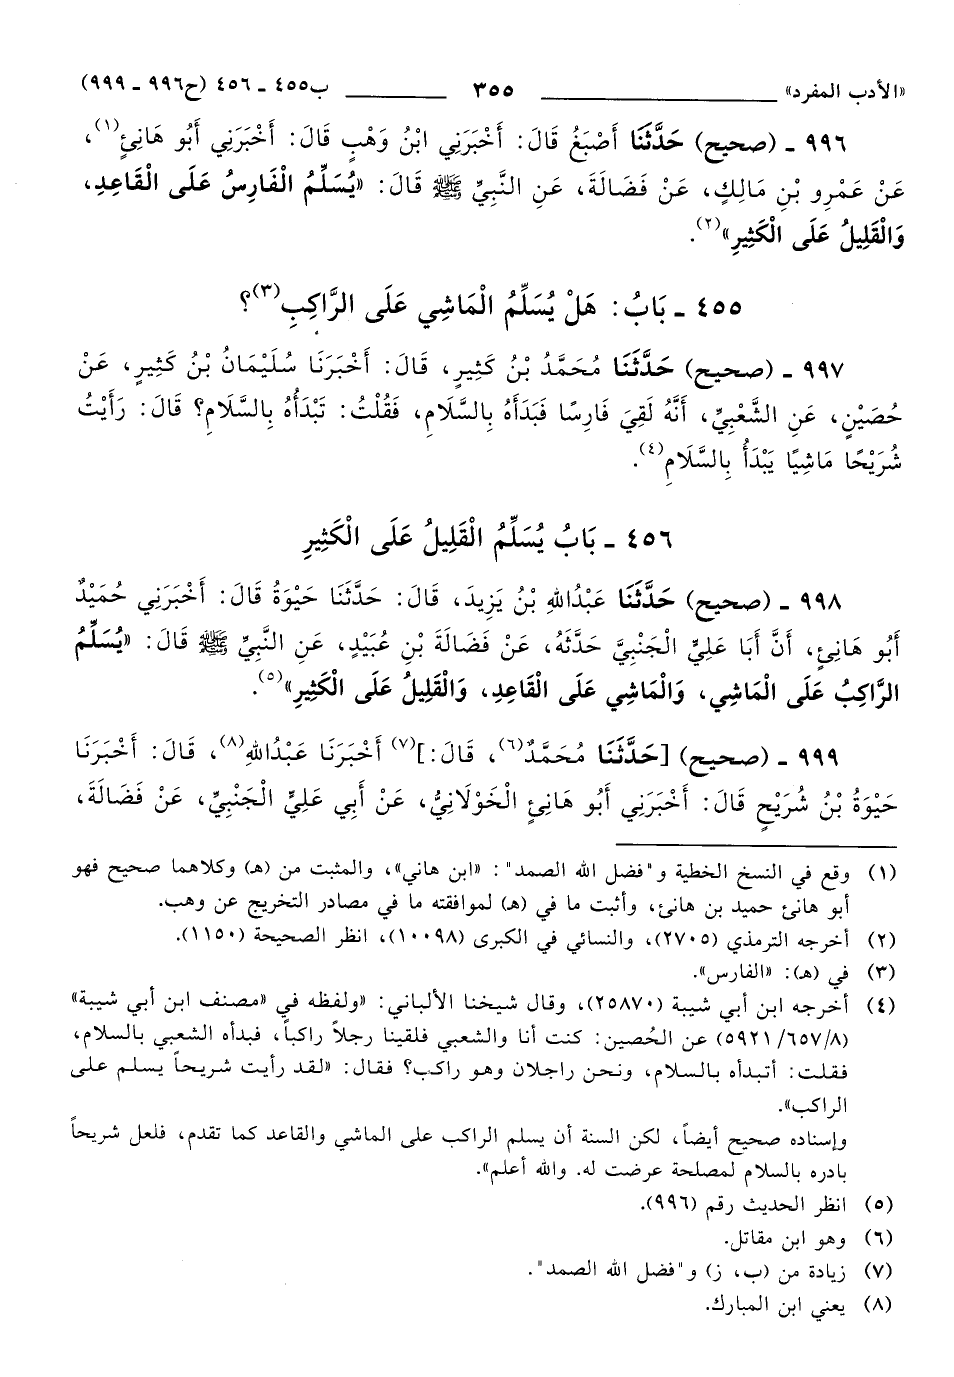 «الأدب المفرد» ٣٥٥ ب٤٥٥ ـ ٤٥٦ (ح٩٩٦ ـ ٩٩٩)
٩٩٦ ـ (صحيح) حَدَّثَنَا أَصْبَغُ قَالَ: أَخْبَرَنِي ابْنُ وَهْبٍ قَالَ: أَخْبَرَنِي أَبُو هَانِئٍ(١)،
عَنْ عَمْرِو بْنِ مَالِكٍ، عَنْ فَضَالَةَ، عَنِ النَّبِيِّ ﷺ قَالَ: «يُسَلِّمُ الْفَارِسُ عَلَى الْقَاعِدِ،
وَالْقَلِيلُ عَلَى الْكَثِيرِ»(٢).
٤٥٥ ـ بَابُ: هَلْ يُسَلِّمُ الْمَاشِي عَلَى الرَّاكِبِ(٣)؟
٩٩٧ ـ (صحيح) حَدَّثَنَا مُحَمَّدُ بْنُ كَثِيرٍ، قَالَ: أَخْبَرَنَا سُلَيْمَانُ بْنُ كَثِيرٍ، عَنْ
حُصَيْنٍ، عَنِ الشَّعْبِيِّ، أَنَّهُ لَقِيَ فَارِسًا فَبَدَأَهُ بِالسَّلَامِ، فَقُلْتُ: تَبْدَأُهُ بِالسَّلَامِ؟ قَالَ: رَأَيْتُ
شُرَيْحًا مَاشِيًا يَبْدَأُ بِالسَّلَامِ(٤).
٤٥٦ ـ بَابُ يُسَلِّمُ الْقَلِيلُ عَلَى الْكَثِيرِ
٩٩٨ ـ (صحيح) حَدَّثَنَا عَبْدُاللهِ بْنُ يَزِيدَ، قَالَ: حَدَّثَنَا حَيْوَةُ قَالَ: أَخْبَرَنِي حُمَيْدٌ
أَبُو هَانِئٍ، أَنَّ أَبَا عَلِيٍّ الْجَنْبِيَّ حَدَّثَهُ، عَنْ فَضَالَةَ بْنِ عُبَيْدٍ، عَنِ النَّبِيِّ ﷺ قَالَ: «يُسَلِّمُ
الرَّاكِبُ عَلَى الْمَاشِي، وَالْمَاشِي عَلَى الْقَاعِدِ، وَالْقَلِيلُ عَلَى الْكَثِيرِ»(٥).
٩٩٩ ـ (صحيح) [حَدَّثَنَا مُحَمَّدٌ(٦)، قَالَ:](٧) أَخْبَرَنَا عَبْدُاللهِ(٨)، قَالَ: أَخْبَرَنَا
حَيْوَةُ بْنُ شُرَيْحٍ قَالَ: أَخْبَرَنِي أَبُو هَانِئٍ الْخَوْلَانِيُّ، عَنْ أَبِي عَلِيٍّ الْجَنْبِيِّ، عَنْ فَضَالَةَ،
(١) وقع في النسخ الخطية و"فضل الله الصمد": «ابن هاني»، والمثبت من (هـ) وكلاهما صحيح فهو
أبو هانئ حميد بن هانئ، وأثبت ما في (هـ) لموافقته ما في مصادر التخريج عن وهب.
(٢) أخرجه الترمذي (٢٧٠٥)، والنسائي في الكبرى (١٠٠٩٨)، انظر الصحيحة (١١٥٠).
(٣) في (هـ): «الفارس».
(٤) أخرجه ابن أبي شيبة (٢٥٨٧٠)، وقال شيخنا الألباني: «ولفظه في «مصنف ابن أبي شيبة»
(٥٩٢١/٦٥٧/٨) عن الحُصين: كنت أنا والشعبي فلقينا رجلاً راكباً، فبدأه الشعبي بالسلام،
فقلت: أتبدأه بالسلام، ونحن راجلان وهو راكب؟ فقال: «لقد رأيت شريحاً يسلم على
الراكب».
وإسناده صحيح أيضاً، لكن السنة أن يسلم الراكب على الماشي والقاعد كما تقدم، فلعل شريحاً
بادره بالسلام لمصلحة عرضت له. والله أعلم».
(٥) انظر الحديث رقم (٩٩٦).
(٦) وهو ابن مقاتل.
(٧) زيادة من (ب، ز) و"فضل الله الصمد".
(٨) يعني ابن المبارك.